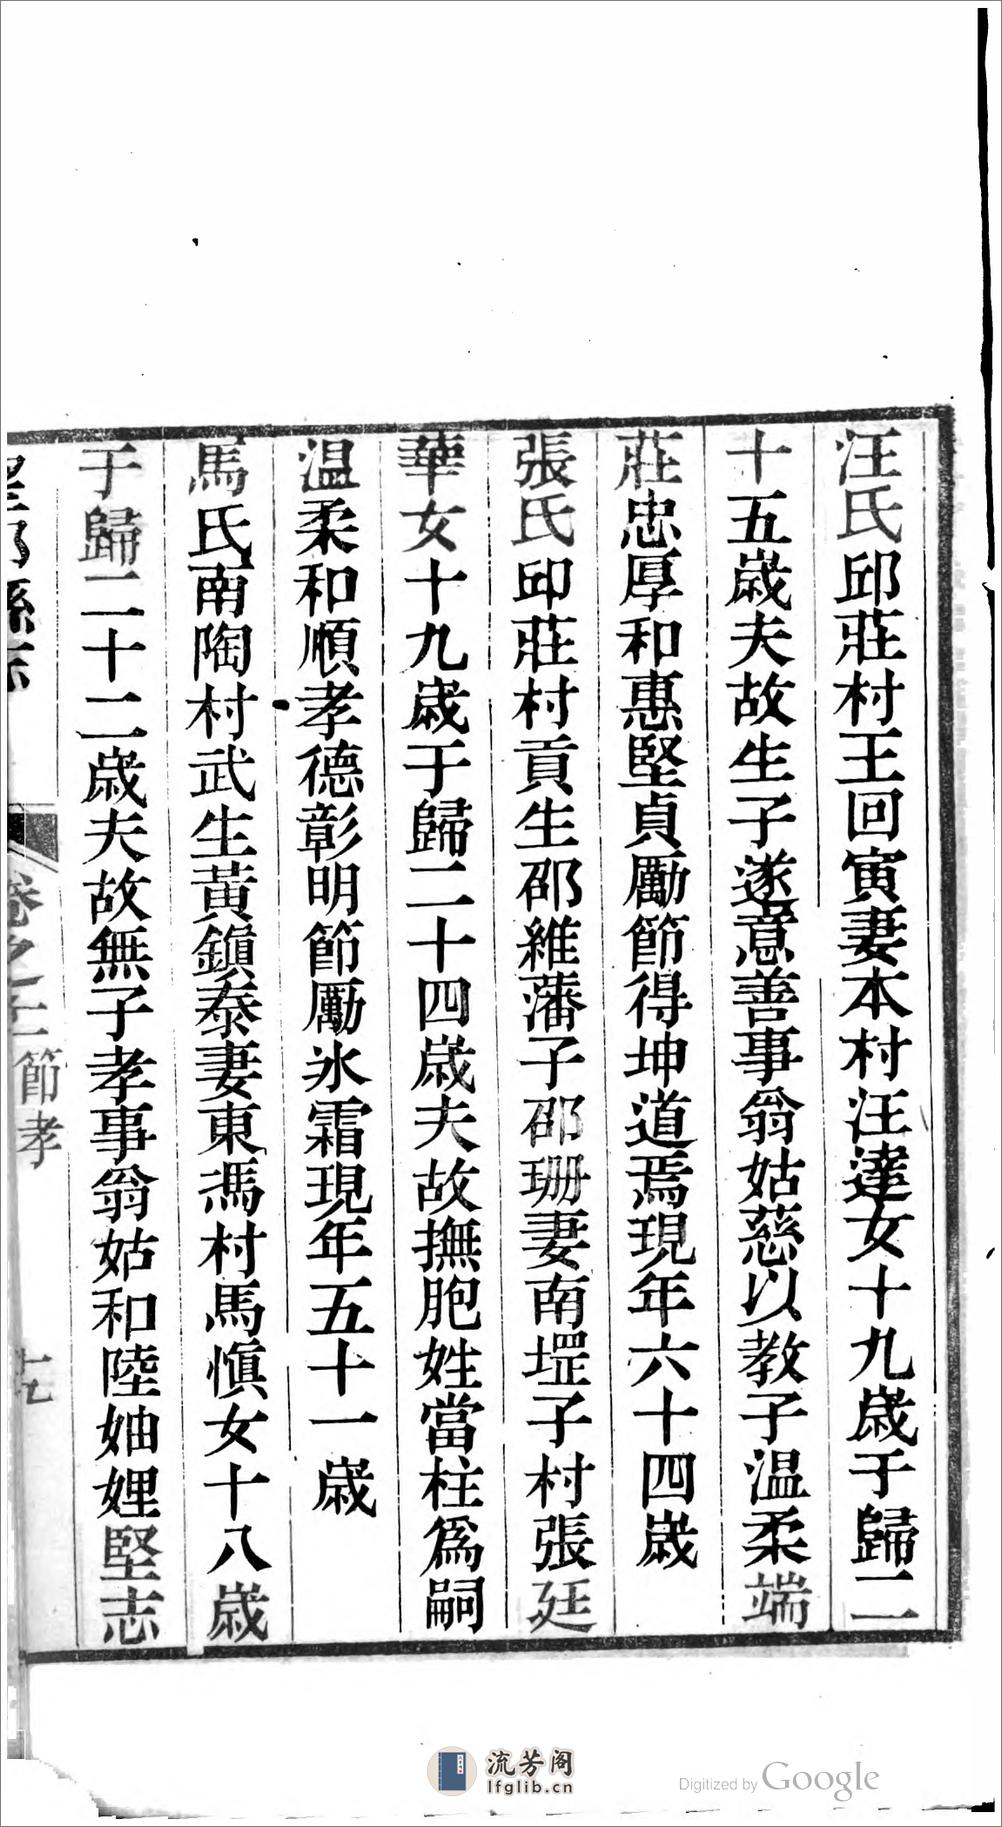 汪氏邱莊村王回寅妻本村汪達女十九歲于歸二
十五歲夫故生子遂意善事翁姑慈以教子温柔端
莊忠厚和惠堅貞勵節得坤道焉現年六十四歲
張氏邱莊村貢生邵維藩子邵珊妻南堽子村張廷
華女十九歲于歸二十四歲夫故撫胞姪當柱爲嗣
温柔和順孝德彰明節勵氷霜現年五十一歲
馬氏南陶村武生黃鎮泰妻東馮村馬慎女十八歲
于歸二十二歲夫故無子孝事翁姑和陸妯娌堅志
縣志
卷之 節孝
七
流芳阁
lfglib.cn
Digitized by Google